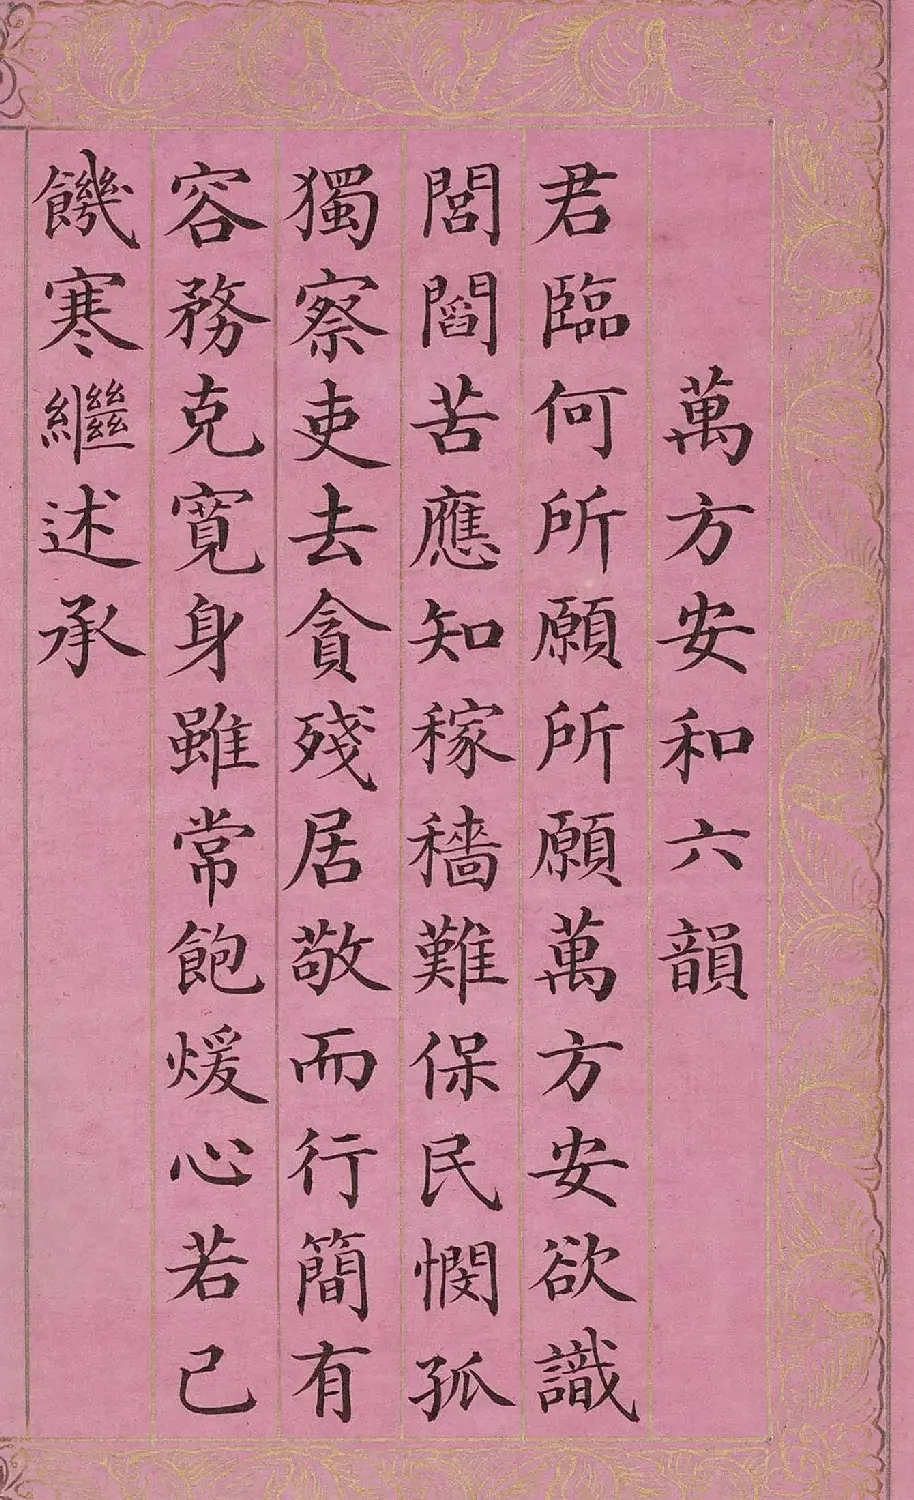 萬方安和六韻
君臨何所願所願萬方安欲識
閭閻苦應知稼穡難保民憫孤
獨察吏去貪殘居敬而行簡有
容務克寬身雖常飽煖心若己
饑寒繼述承